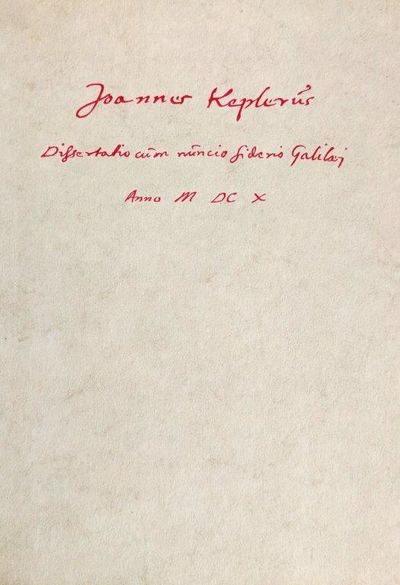 Joannes Keplerus
Dissertatio cum nuncio siderio Galilaj
Anno M DC X